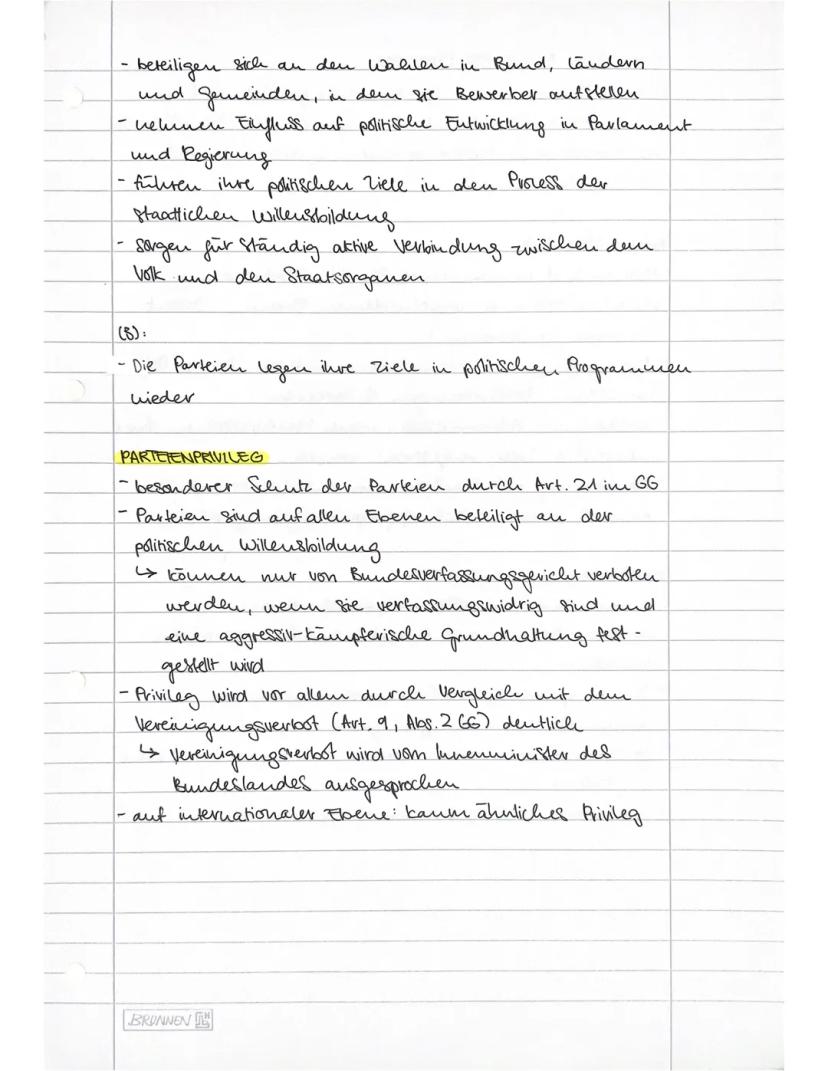 - beteiligen sich an den Wahlen in Bund, Ländern
und Gemeinden, in dem sie Bewerber aufstellen
- nehmen Einfluss auf politische Entwicklung in Parlament
und Regierung
- führen ihre politischen Ziele in den Prozess der
staatlichen Willensbildung
- sorgen für ständig aktive Verbindung zwischen dem
Volk und den Staatsorganen
(3):
- Die Parteien legen ihre Ziele in politischen Programmen
nieder
PARTEIENPRIVILEG
- besonderer Schutz der Parteien durch Art. 21 im GG
- Parteien sind auf allen Ebenen beteiligt an der
politischen Willensbildung
↳ können nur von Bundesverfassungsgericht verboten
werden, wenn sie verfassungswidrig sind und
eine aggressiv-kämpferische Grundhaltung fest-
gestellt wird
- Privileg wird vor allem durch Vergleich mit dem
Vereinigungsverbot (Art. 9, Abs. 2 GG) deutlich
↳ Vereinigungsverbot wird vom Innenminister des
Bundeslandes ausgesprochen
- auf internationaler Ebene: kaum ähnliches Privileg
BRUNNEN